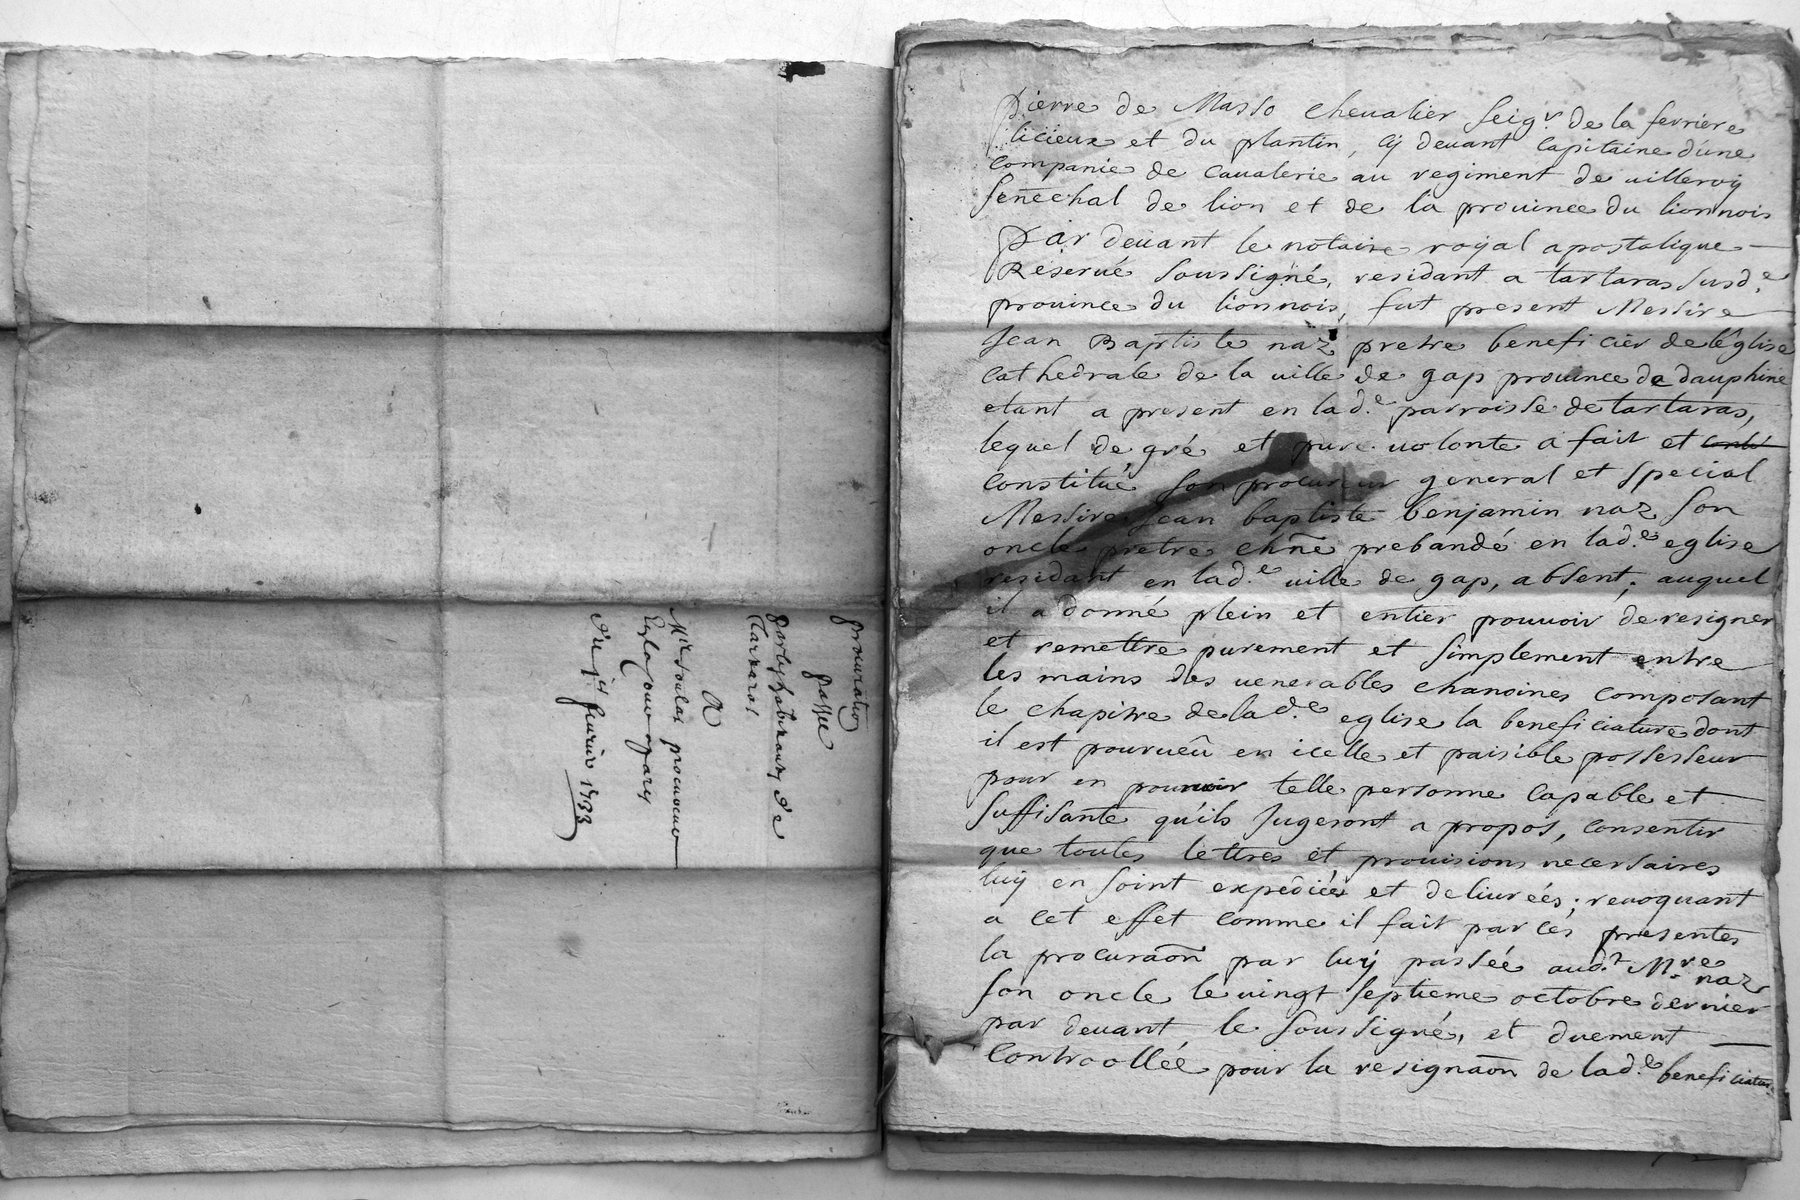 procuration
passée
par les habitants de
Tartaras
A
Mre soulas procureur
de 14 fevrier 1733
Pierre de Masso chevalier seigr. de la ferriere
licieux et du plantin, cy devant capitaine d'une
companie de cavalerie au regiment de villeroy
senechal de lion et de la province du lionnois
Par devant le notaire royal apostolique
Reservé soussigné, residant a tartaras susde.
province du lionnois, fut present Messire
Jean Baptiste naz pretre beneficier de l'église
cathedrale de la ville de gap province de dauphiné
etant a present en lade. parroisse de tartaras,
lequel de gré et pure volonte a fait et
constitué son procureur general et special
Messire Jean baptiste benjamin naz son
oncle pretre chñe prebandé en lade. eglise
residant en lade. ville de gap, absent; auquel
il a donné plein et entier pouvoir de resigner
et remettre purement et simplement entre
les mains des venerables chanoines composant
le chapitre de lade. eglise la beneficiature dont
il est pourveû en icelle et paisible possesseur
pour en pourvoir telle personne capable et
suffisante qu'ils jugeront a propos, consentir
que toutes lettres et provisions necessaires
luy en soint expediées et delivrées; revoquant
a cet effet comme il fait par ces presentes
la procuraõn par luy passée audt. Mre. naz
son oncle le vingt septieme octobre dernier
par devant le soussigné, et duement
controollée pour la resignaõn de lade. beneficiature